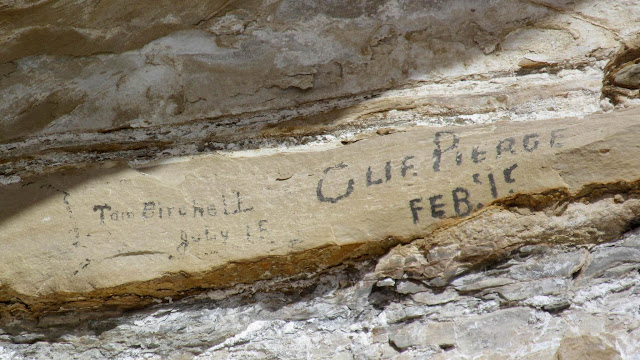 Tom Birchell
July 15
Clif Pierce
Feb. 15